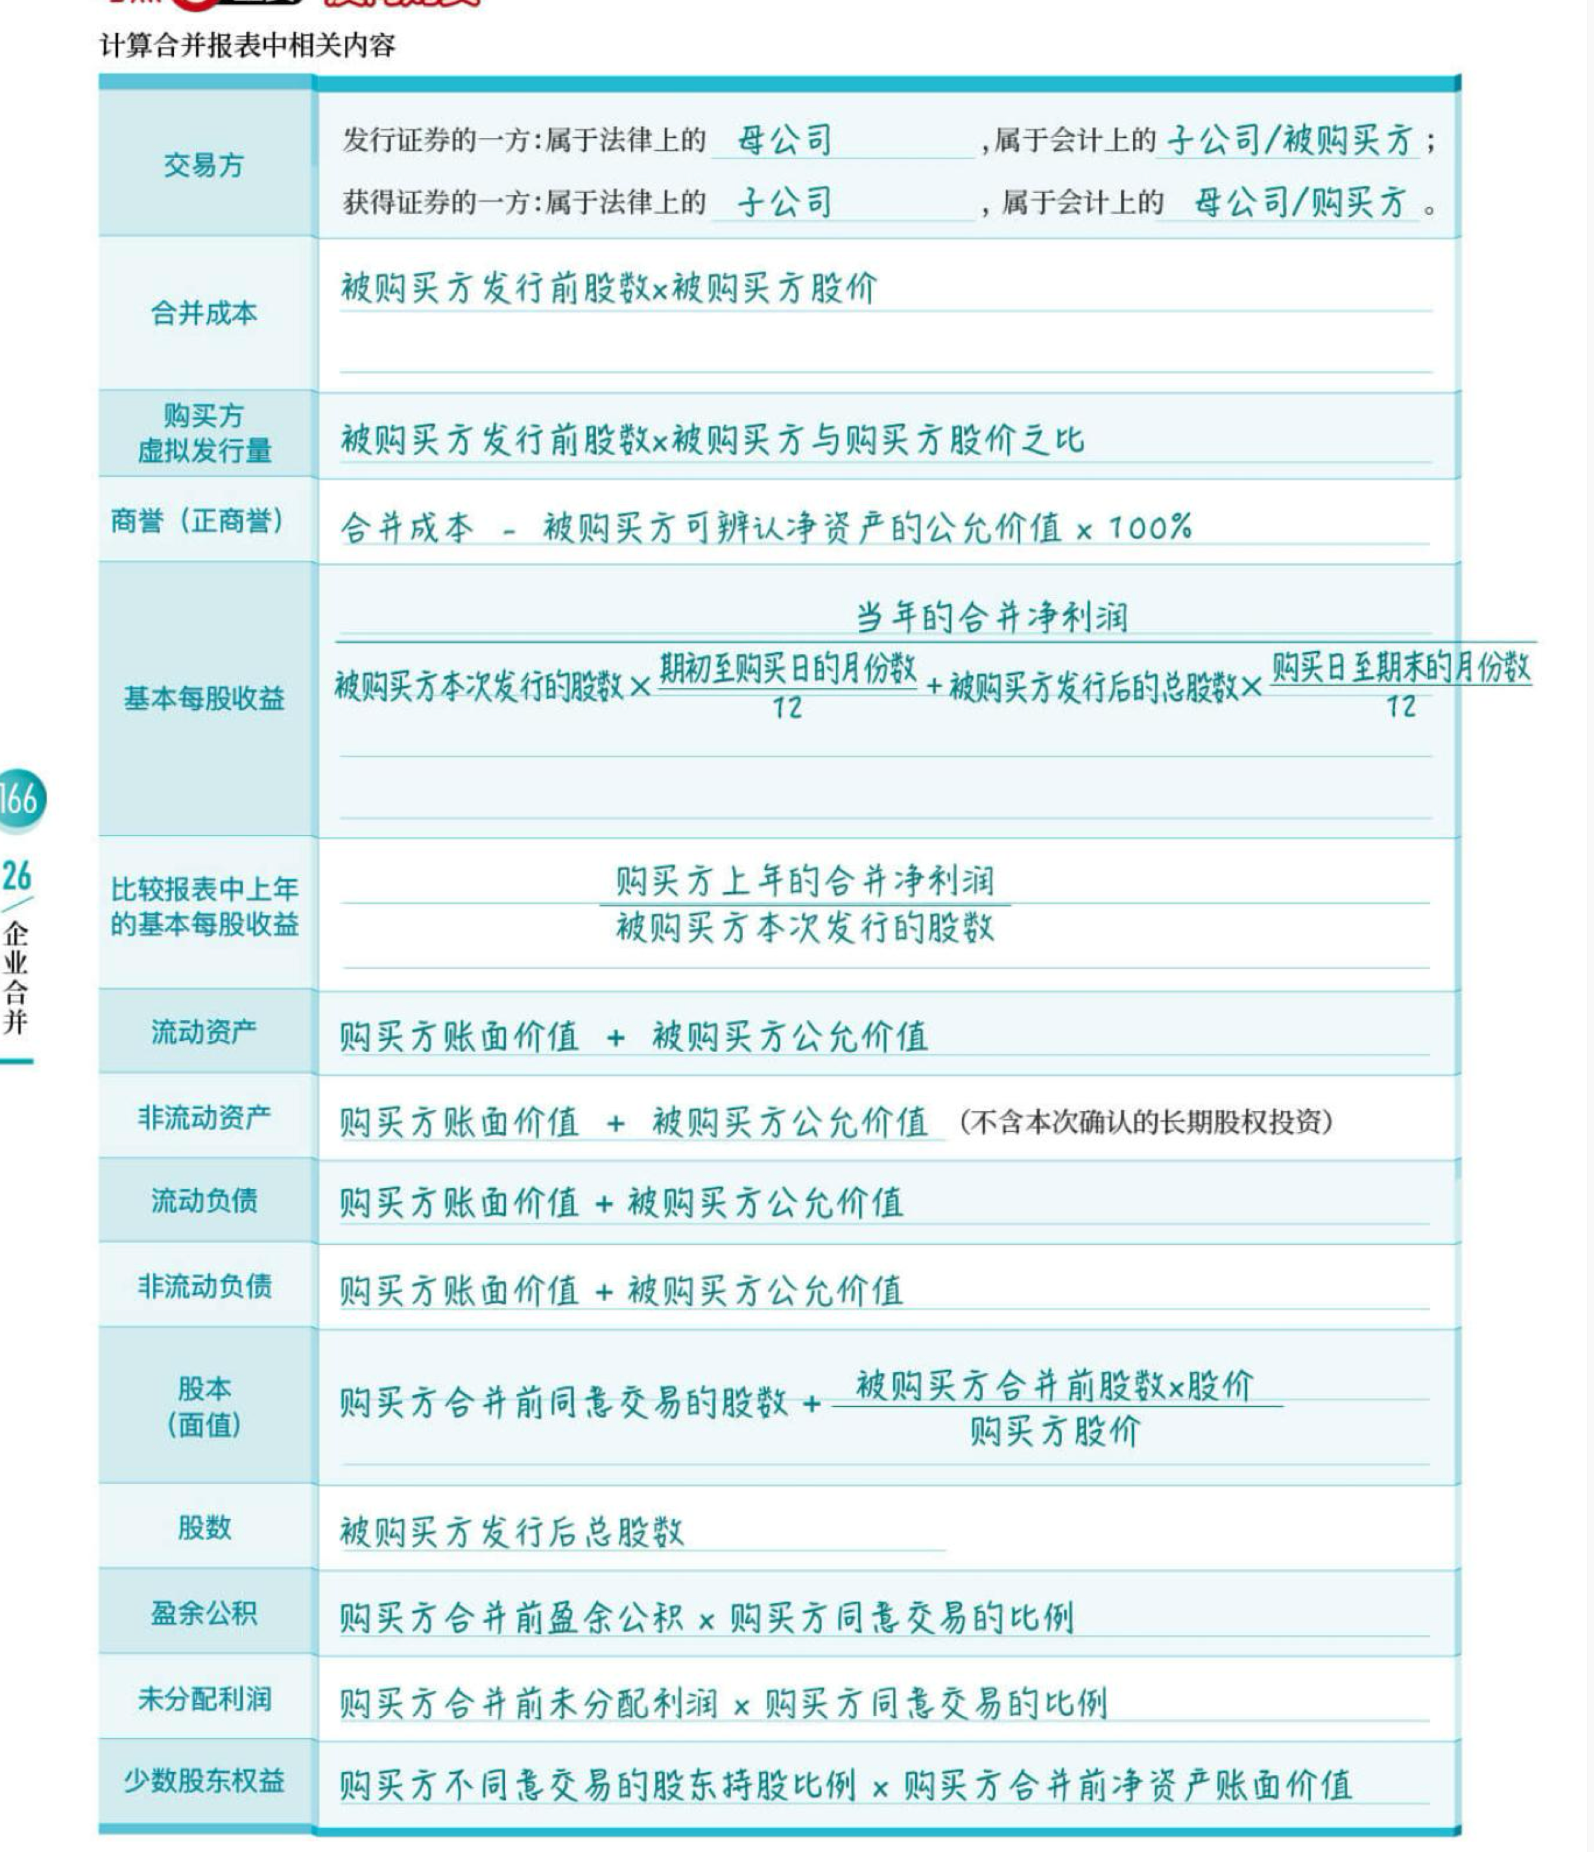 计算合并报表中相关内容
交易方
发行证券的一方:属于法律上的 母公司 ,属于会计上的 子公司/被购买方 ;
获得证券的一方:属于法律上的 子公司 ,属于会计上的 母公司/购买方 。
合并成本
被购买方发行前股数x被购买方股价
购买方
虚拟发行量
被购买方发行前股数x被购买方与购买方股价之比
商誉（正商誉）
合并成本 - 被购买方可辨认净资产的公允价值 x 100%
基本每股收益
当年的合并净利润
被购买方本次发行的股数×期初至购买日的月份数/12+被购买方发行后的总股数×购买日至期末的月份数/12
比较报表中上年
的基本每股收益
购买方上年的合并净利润
被购买方本次发行的股数
流动资产
购买方账面价值 + 被购买方公允价值
非流动资产
购买方账面价值 + 被购买方公允价值 （不含本次确认的长期股权投资）
流动负债
购买方账面价值 + 被购买方公允价值
非流动负债
购买方账面价值 + 被购买方公允价值
股本
（面值）
购买方合并前同意交易的股数 + 被购买方合并前股数x股价
购买方股价
股数
被购买方发行后总股数
盈余公积
购买方合并前盈余公积 x 购买方同意交易的比例
未分配利润
购买方合并前未分配利润 x 购买方同意交易的比例
少数股东权益
购买方不同意交易的股东持股比例 x 购买方合并前净资产账面价值
166
26
企业合并